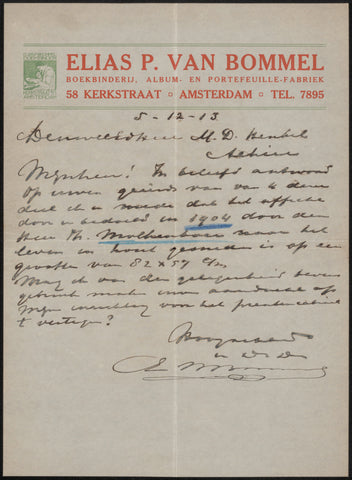 ELIAS P. VAN BOMMEL
BOEKBINDERIJ, ALBUM- EN PORTEFEUILLE-FABRIEK
58 KERKSTRAAT AMSTERDAM TEL. 7895
5-12-13
M. D. Henkel
Alhier
Mijnheer! In beleefd antwoord
op uw van 4 dezer
deel ik u mede dat het affiche
door u bedoeld in 1904 door den
Heer Th. Molkenboer naar het
leven in hout gesneden is op een
grootte van 82 x 57 c/m.
Mag ik van de gelegenheid
gebruik maken uw aandacht op
mijn inrichting voor het
t vestigen?
Hoogachtend